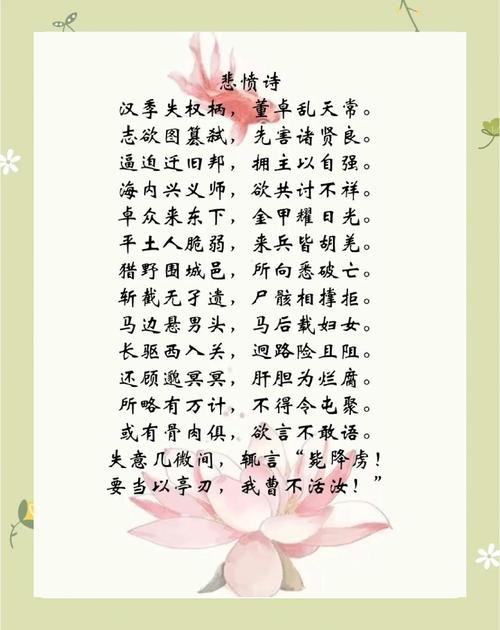 悲愤诗
汉季失权柄，董卓乱天常。
志欲图篡弑，先害诸贤良。
逼迫迁旧邦，拥主以自强。
海内兴义师，欲共讨不祥。
卓众来东下，金甲耀日光。
平土人脆弱，来兵皆胡羌。
猎野围城邑，所向悉破亡。
斩截无孑遗，尸骸相撑拒。
马边悬男头，马后载妇女。
长驱西入关，迥路险且阻。
还顾邈冥冥，肝胆为烂腐。
所略有万计，不得令屯聚。
或有骨肉俱，欲言不敢语。
失意几微间，辄言“毙降虏！
要当以亭刃，我曹不活汝！”